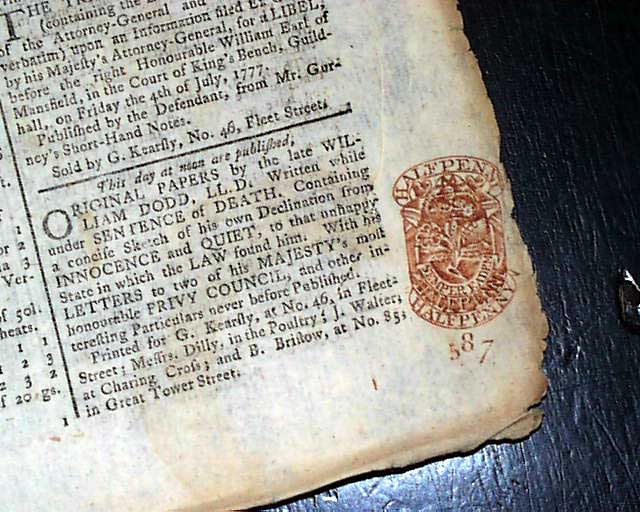 (containing the
of the Attorney-General and
verbatim) upon an Information filed Ex
by his Majesty's Attorney-General, for a LIBEL,
before the right Honourable William Earl of
Mansfield, in the Court of King's Bench, Guild-
hall, on Friday the 4th of July, 1777.
Published by the Defendant, from Mr. Gur-
ney's Short-Hand Notes.
Sold by G. Kearsly, No. 46, Fleet Street.
This day at noon are published,
ORIGINAL PAPERS by the late WIL-
LIAM DODD, LL.D. Written while
under SENTENCE of DEATH. Containing
a concise Sketch of his own Declination from
INNOCENCE and QUIET, to that unhappy
State in which the LAW found him. With his
LETTERS to two of his MAJESTY's most
honourable PRIVY COUNCIL, and other in-
teresting Particulars never before Published.
Printed for G. Kearsly, at No. 46, in Fleet-
Street; Messrs. Dilly, in the Poultry; J. Walter,
at Charing Cross; and B. Bristow, at No. 85,
in Great Tower Street.
Ver-
of 50l.
heats.
1 1
2 3
2 3 2
f 20 gs.
1
HALFPENNY
HALFPENNY
587